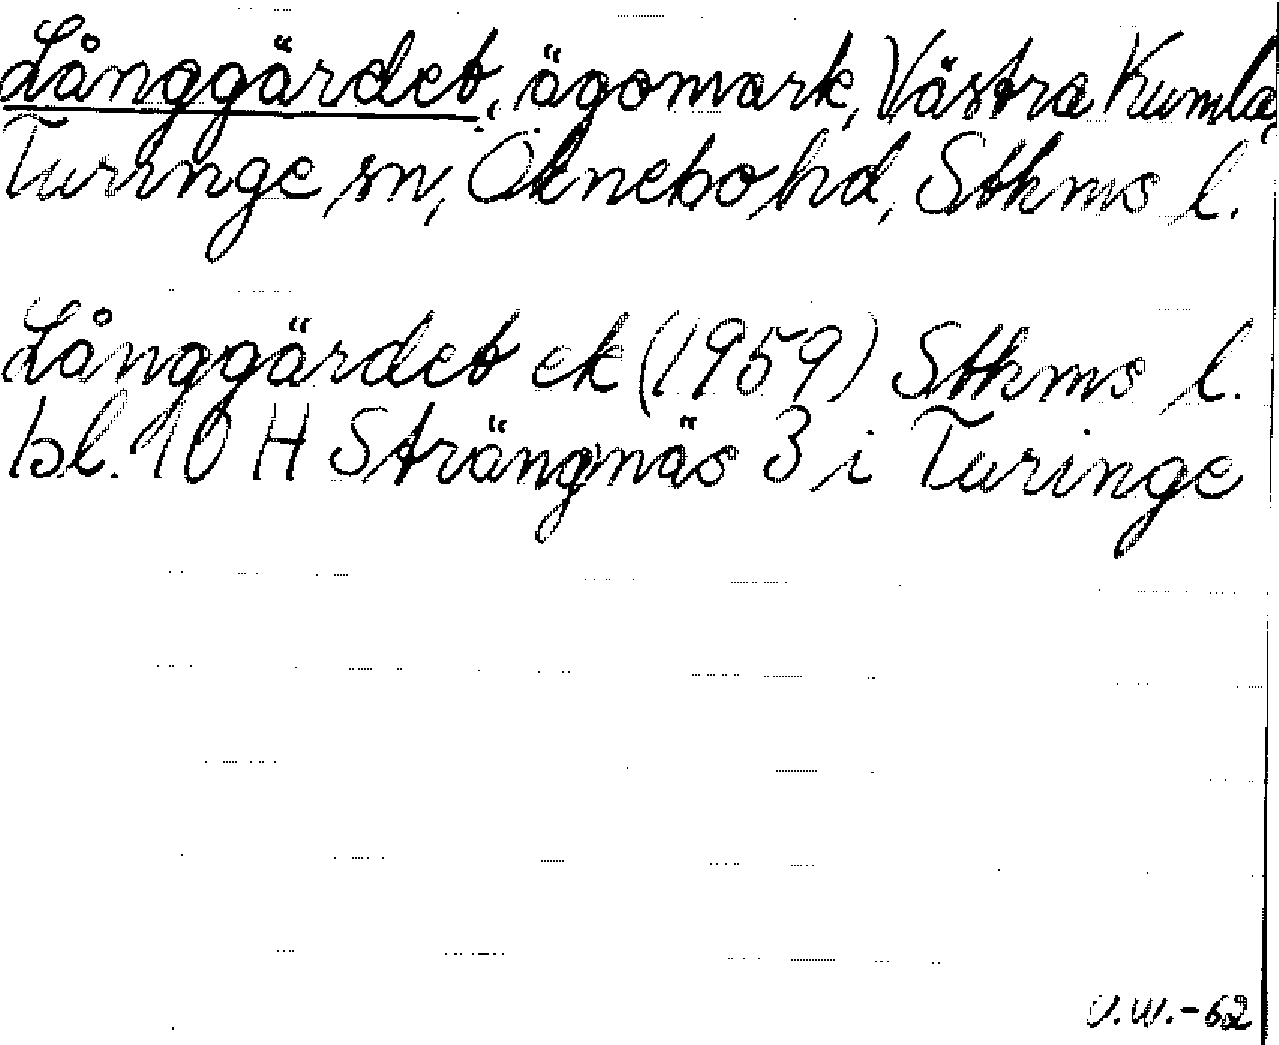 Långgärdet, ägomark, Västra Kumla,
Turinge sn, Öknebo hd, Sthms l.
Långgärdet ek (1959) Sthms l.
bl. 10 H Strängnäs 3 i Turinge
U.W.-62